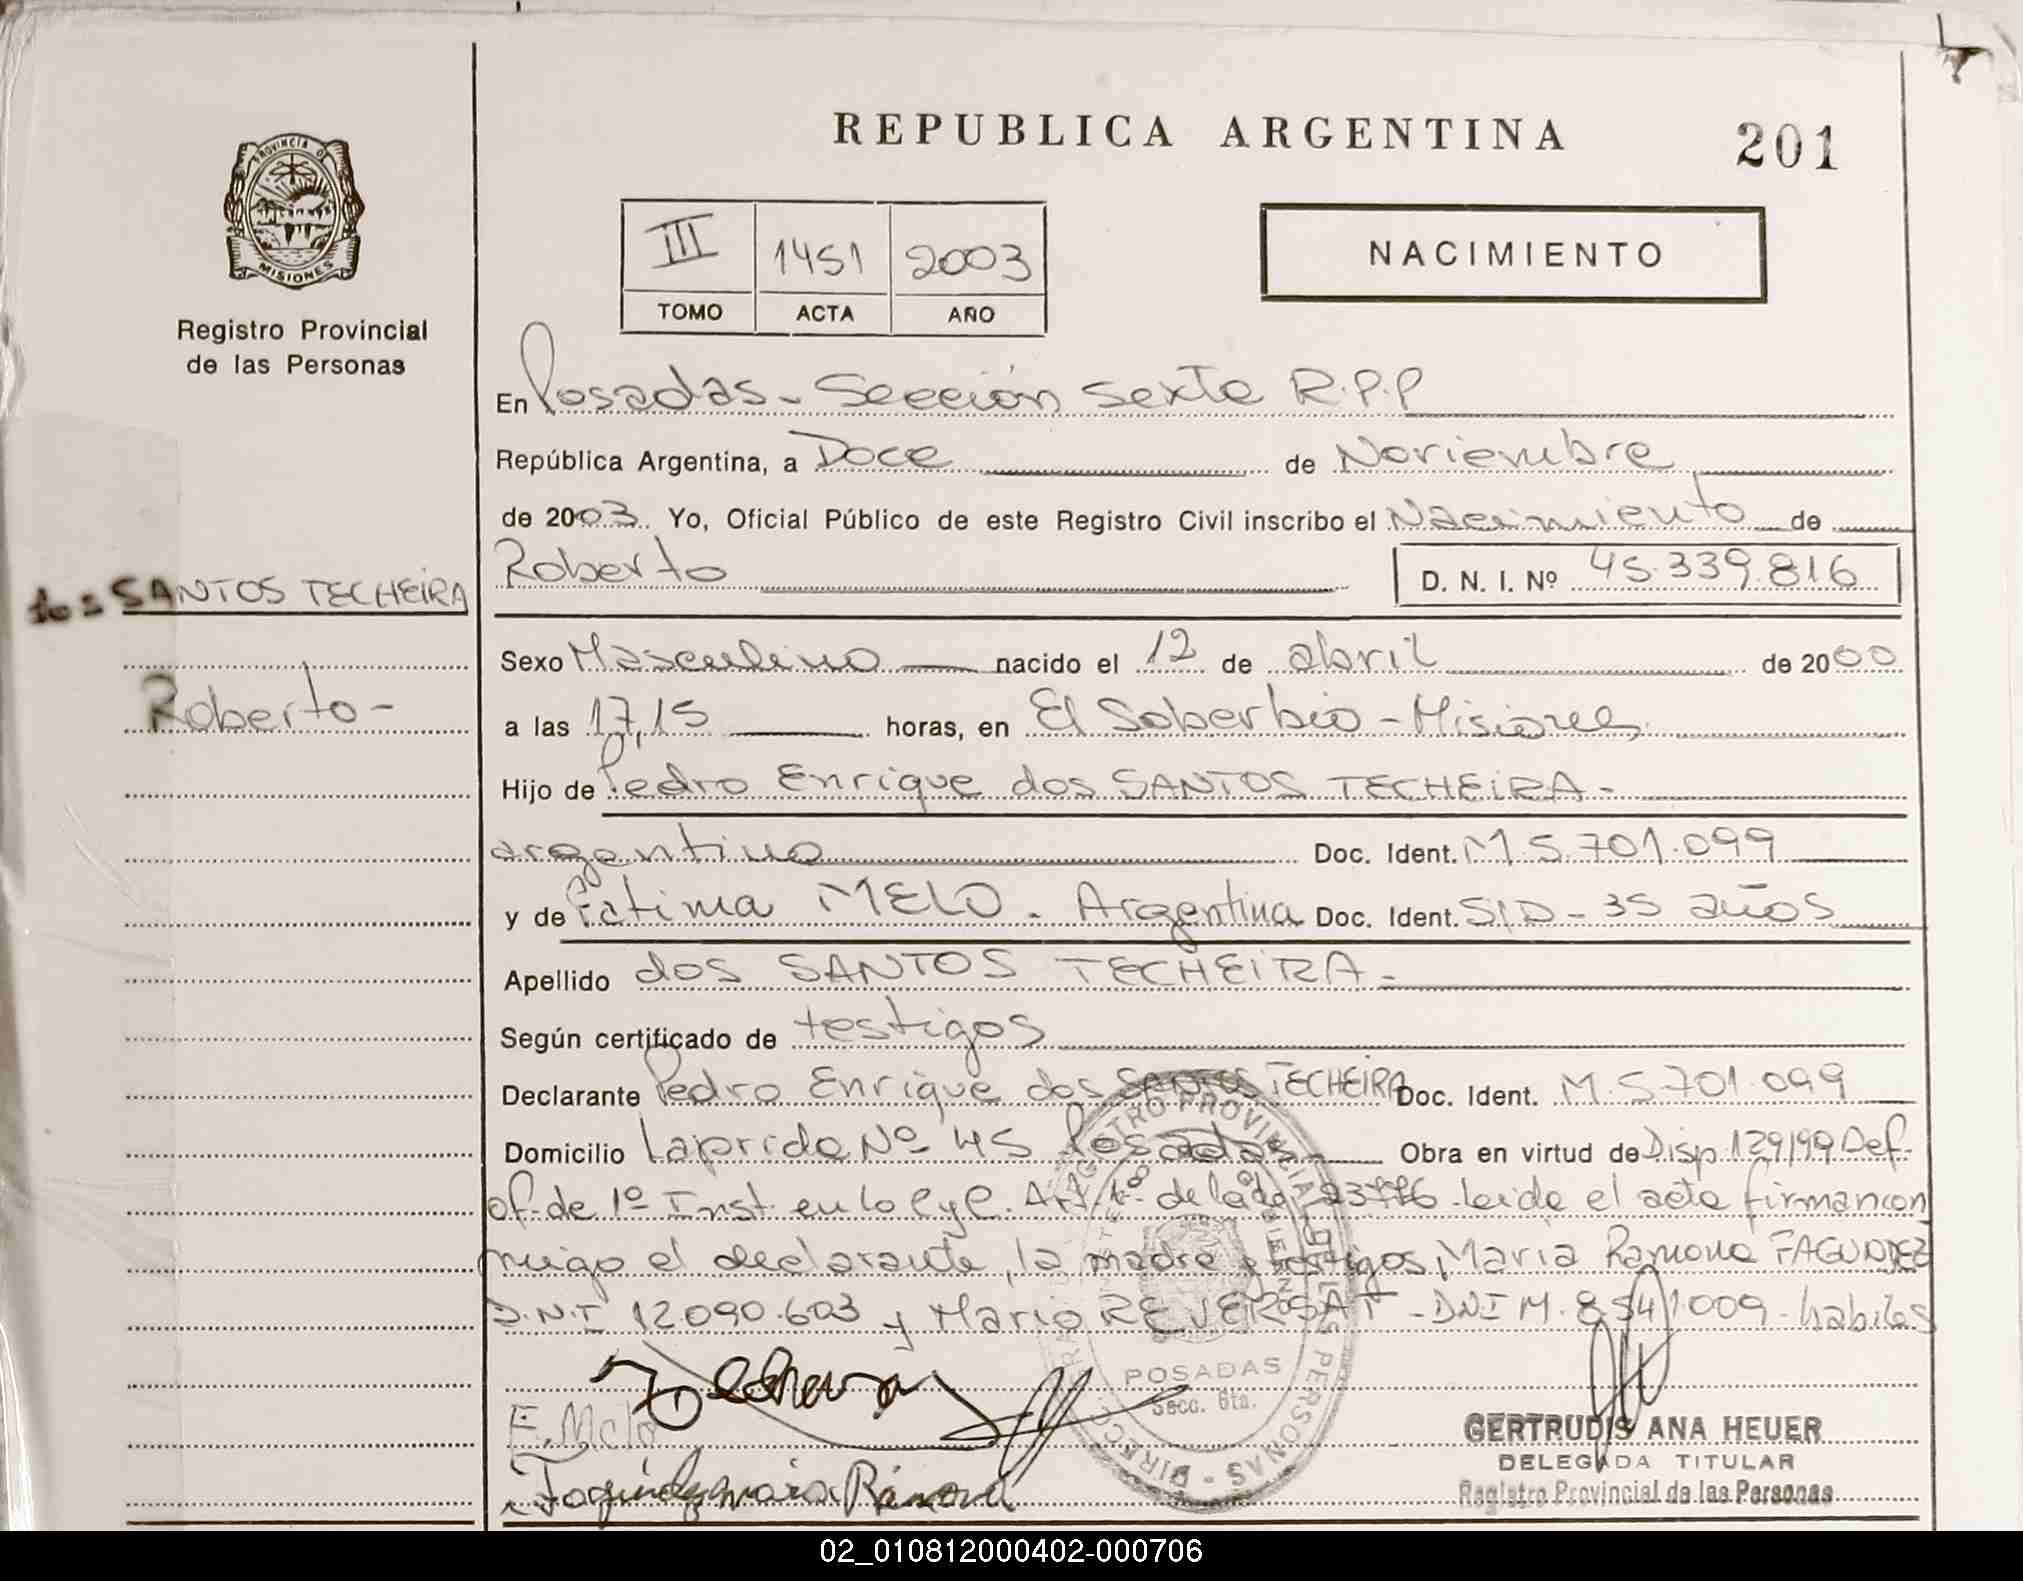 REPUBLICA ARGENTINA
201
PROVINCIA DE
MISIONES
Registro Provincial
de las Personas
III 1451 2003
TOMO ACTA AÑO
NACIMIENTO
En Posadas - Sección Sexta R.P.P
República Argentina, a Doce de Noviembre
de 2003. Yo, Oficial Público de este Registro Civil inscribo el Nacimiento de
Roberto D. N. I. Nº 45.339.816
dos SANTOS TECHEIRA
Roberto -
Sexo Masculino nacido el 12 de abril de 2000
a las 17,15 horas, en El Soberbio - Misiones
Hijo de Pedro Enrique dos SANTOS TECHEIRA -
argentino Doc. Ident. M 5.701.099
y de Fátima MELO - Argentina Doc. Ident. S/D - 35 años
Apellido dos SANTOS TECHEIRA -
Según certificado de testigos
Declarante Pedro Enrique dos SANTOS TECHEIRA Doc. Ident. M. 5.701.099
Domicilio Laprida Nº 45 Posadas Obra en virtud de Disp 129/99 Def.
of. de 1º Inst. en lo C y C. Art 1º de la 23776 leida el acta firman con
migo el declarante, la madre y testigos, María Ramona FAGUNDEZ
D.N.I 12.090.603 y Mario REVERSAT - DNI M. 8.541.009 - habiles
POSADAS
Secc. 6ta.
E. Melo
GERTRUDIS ANA HEUER
DELEGADA TITULAR
Registro Provincial de las Personas
02_010812000402-000706